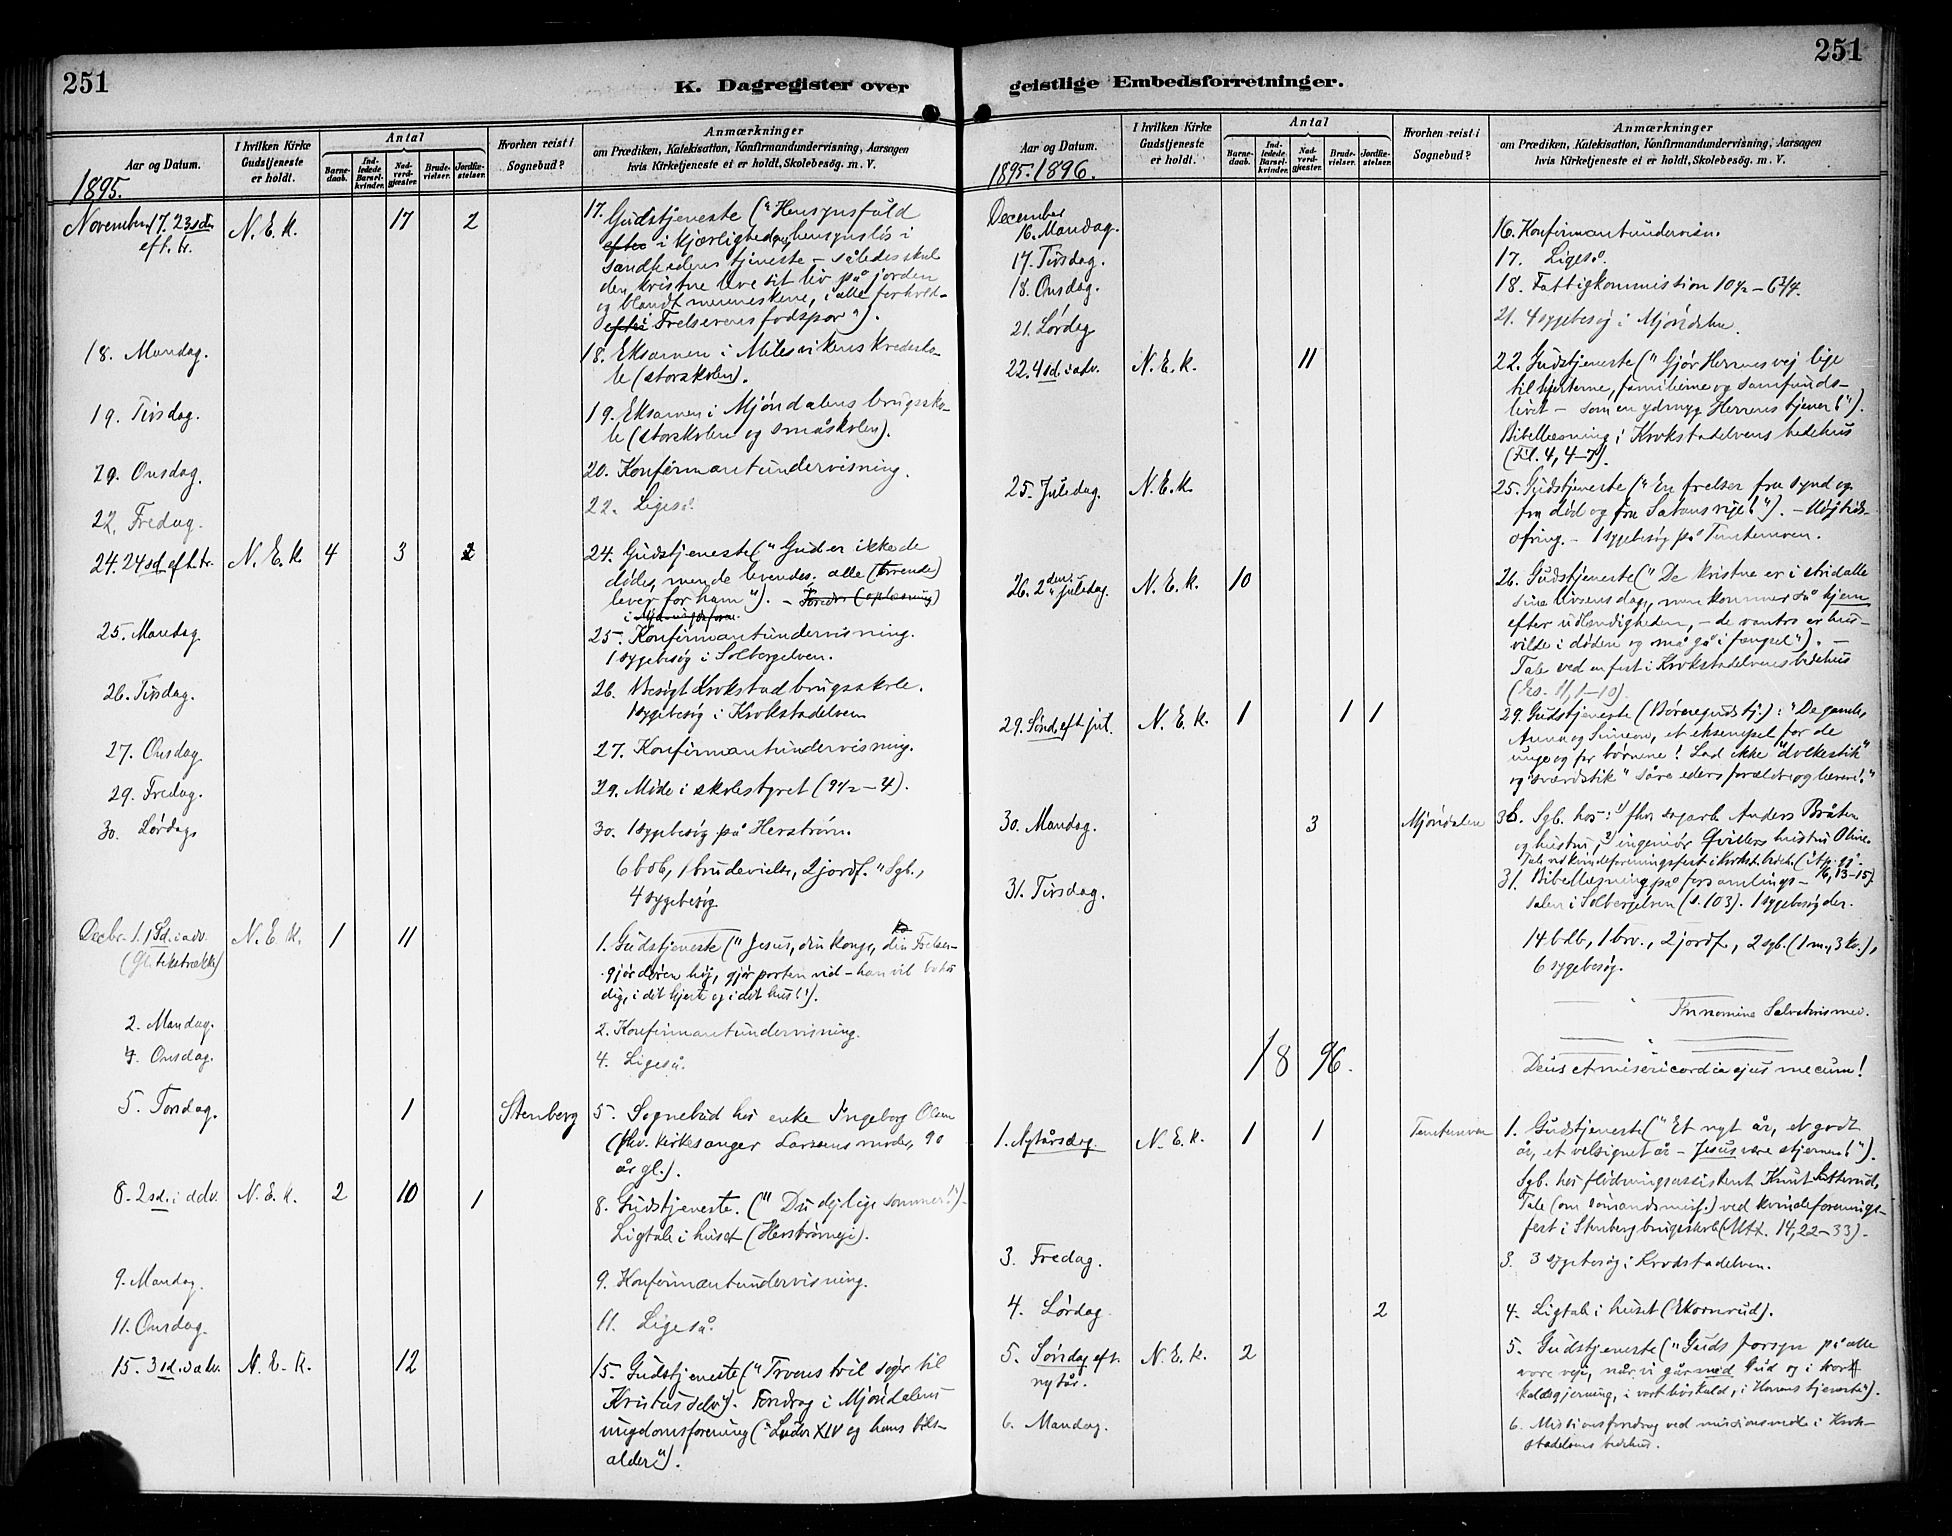 251
K. Dagregister over
Aar og Datum.
I hvilken Kirke Gudstjeneste er holdt.
Antal
Barnedaab.
Indledede Barselkvinder.
Nadverdgjæster.
Brudevielser.
Jordfæstelser.
Hvorhen reist i Sognebud?
Anmærkninger
om Prædiken, Katekisation, Konfirmandundervisning, Aarsagen
hvis Kirketjeneste ei er holdt, Skolebesög. m. V.
1895.
November 17. 23 sd. N. E. K. 17 2 17. Gudstjeneste ("Hensynsfuld
eft. tr. efter i kjærlighed og hensynsløs i
sandhedens tjeneste – således skal
den kristne leve sit liv på jorden
og blandt menneskene, i alle forhold –
efter i Frelserens fodspor").
18. Mandag. 18. Eksamen i Milesvikens kredssko-
le (storskolen).
19. Tirsdag. 19. Eksamen i Mjøndalens brugssko-
le (storskolen og småskolen).
20. Onsdag. 20. Konfirmantundervisning.
22. Fredag. 22. Ligeså.
24. 24 sd. eft. tr. N. E. K. 4 3 2 24. Gudstjeneste ("Gud er ikke de
dødes, men de levendes: alle (troende)
lever for ham"). – Foredr (oplæsning)
25. Mandag 25. Konfirmantundervisning.
1 sygebesøg i Solbergelven.
26. Tirsdag. 26. Besøgt Krokstad brugsskole.
1 sygebesøg i Krokstadelven
27. Onsdag 27. Konfirmantundervisning.
29. Fredag. 29. Møde i skolestyret (9 1/2 – 4).
30. Lørdag 30. 1 sygebesøg på Herstrøm.
6 bdb, 1 brudevielse, 2 jordf. " Sgb.,
4 sygebesøg
Decbr. 1. 1 Sd. i adv. N. E. K. 1 11 1. Gudstjeneste ("Jesus, din konge, din Frelser –
(Gl. tekstrække) gjør døren høj, gjør porten vid – han vil
dig, i dit hjerte og i dit hus!").
2. Mandag. 2. Konfirmantundervisning.
4. Onsdag. 4. Ligeså.
5. Torsdag. 1 Stenberg 5. Sognebud hos enke Ingeborg Olsen
(fhv. kirkesanger Larsens moder, 90
år gl.).
8. 2 sd. i adv. N. E. K. 2 10 1 8. Gudstjeneste. ("Du dejlige sommer!") –
Ligtale i huset (Herstrømeje).
9. Mandag. 9. Konfirmantundervisning.
11. Onsdag. 11. Ligeså.
15. 3 sd. i adv. N. E. K. 12 15. Gudstjeneste ("Troens tvil søger til
Kristus selv"). Foredrag i Mjøndalens
ungdomsforening ("Ludv XIV og hans tids-
alder").
251
geistlige Embedsforretninger.
Aar og Datum.
I hvilken Kirke Gudstjeneste er holdt.
Antal
Barnedaab.
Indledede Barselkvinder.
Nadverdgjæster.
Brudevielser.
Jordfæstelser.
Hvorhen reist i Sognebud?
Anmærkninger
om Prædiken, Katekisation, Konfirmandundervisning, Aarsagen
hvis Kirketjeneste ei er holdt, Skolebesög. m. V.
1895. 1896.
December
16. Mandag. 16. Konfirmantundervisn.
17. Tirsdag. 17. Ligeså.
18. Onsdag. 18. Fattigkommission 10 1/2 – 6 3/4.
21. Lørdag 21. 4 sygebesøg i Mjøndalen.
22. 4 sd. i adv. N. E. K. 11 22. Gudstjeneste ("Gjør Herrens vej lige
til hjerterne, familierne og samfunds-
livet – som en ydmyg Herrens tjener!").
Bibellæsning i Krokstadelvens bedehus
(Fil. 4, 4–7).
25. Juledag. N. E. K. 25. Gudstjeneste ("En frelser fra synd og
fra død og fra Satans vije!"). – Højtids-
ofring. – 1 sygebesøg på Temtemoen.
26. 2 den juledag. N. E. K. 10 26. Gudstjeneste ("De kristne er i strid alle
sine livsens dage, men kommer så hjem
efter udlændigheden, – de vantro er hus-
vilde i døden og må gå i fængsel"). –
Tale ved en fest i Krokstadelvens bedehus
(Es. 11, 1–10).
29. Sønd. eft. jul. N. E. K. 1 1 1 29. Gudstjeneste (Børnegudstj.): "De gamle,
Anna og Simeon, et eksempel for de
unge og for børnene! Lad ikke "dolkestik"
og "sværdstik" såre eders forældre og lærere!"
30. Mandag. 3 Mjøndalen 30. Sgb. hos: 1) fhv. sagarb. Anders Bråten
og hustru, 2) ingeniør Qvillers hustru Oline.
Tale ved kvindeforeningsfest i Krokst. bedeh. (Ap. gj. 16, 13–15)
31. Tirsdag. 31. Bibellæsning på forsamlings-
salen i Solbergelven (s. 103). 1 sygebesøg der.
14 bdb, 1 brv., 2 jordf., 2 sgb. (1 m., 3 kv.),
6 sygebesøg.
In nomine Salvatoris mei.
1896.
Deus et misericordia ejus mecum!
1. Nytårsdag. N. E. K. 1 1 Temtemoen 1. Gudstjeneste ("Et nyt år, et godt
år, et velsignet år – Jesus være stjernen!").
Sgb. hos fløtningsassistent Knut Sætterud,
Tale (om sømandsmis.) ved kvindeforenings-
fest i Stenberg brugsskole (Mtt. 14, 22–33).
3. Fredag. 3. 3 sygebesøg i Krokstadelven.
4. Lørdag. 2 4. Ligtale i huset (Ekornrud).
5. Søndag eft. N. E. K. 2 5. Gudstjeneste ("Guds forsyn på alle
nytår. vore veje, når vi går med Gud og i vort
kaldsgjerning, i vort huskald, i Herrens tjeneste").
6. Mandag. 6. Missionsforedrag ved missionsmøde i Krok-
stadelvens bedehus.